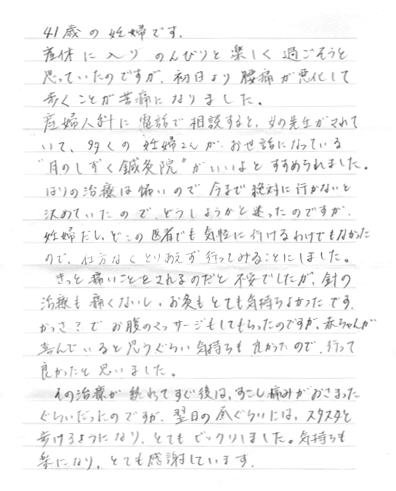 41歳の妊婦です。
産休に入り のんびりと楽しく過ごそうと
思っていたのですが、初日より腰痛が悪化して
歩くことが苦痛になりました。
産婦人科に電話で相談すると、女の先生がされて
いて、多くの妊婦さんがお世話になっている
"月のしずく鍼灸院"がいいよと すすめられました。
はりの治療は怖いので 今まで絶対に行かないと
決めていたので、どうしようかと迷ったのですが、
妊婦だし、どこの医者でも気軽に行けるわけでもなかった
ので、仕方なくとりあえず行ってみることにしました。
きっと痛いことをされるのだと不安でしたが、針の
治療も痛くないし、お灸もとても気持ちよかったです。
かっさ?でお腹のマッサージもしてもらったのですが、赤ちゃんが
喜んでいると思うぐらい気持ちも良かったので、行って
良かったと思いました。
その治療が終わってすぐ後は、すこし痛みがおさまった
ぐらいだったのですが、翌日の昼ぐらいには、スタスタと
歩けるようになり、とてもビックリしました。気持ちも
楽になり、とても感謝しています。